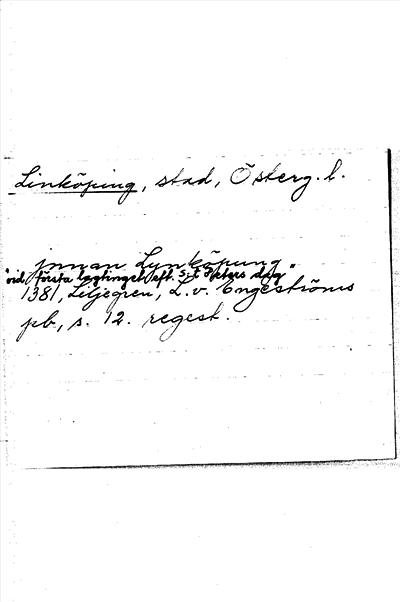 Linköping, stad, Österg. l.
jnnan Lynköpung
"vid första lagtinget eft. S:t Peters dag"
1381, Liljegren, L. v. Engeströms
pb, s. 12. regest.